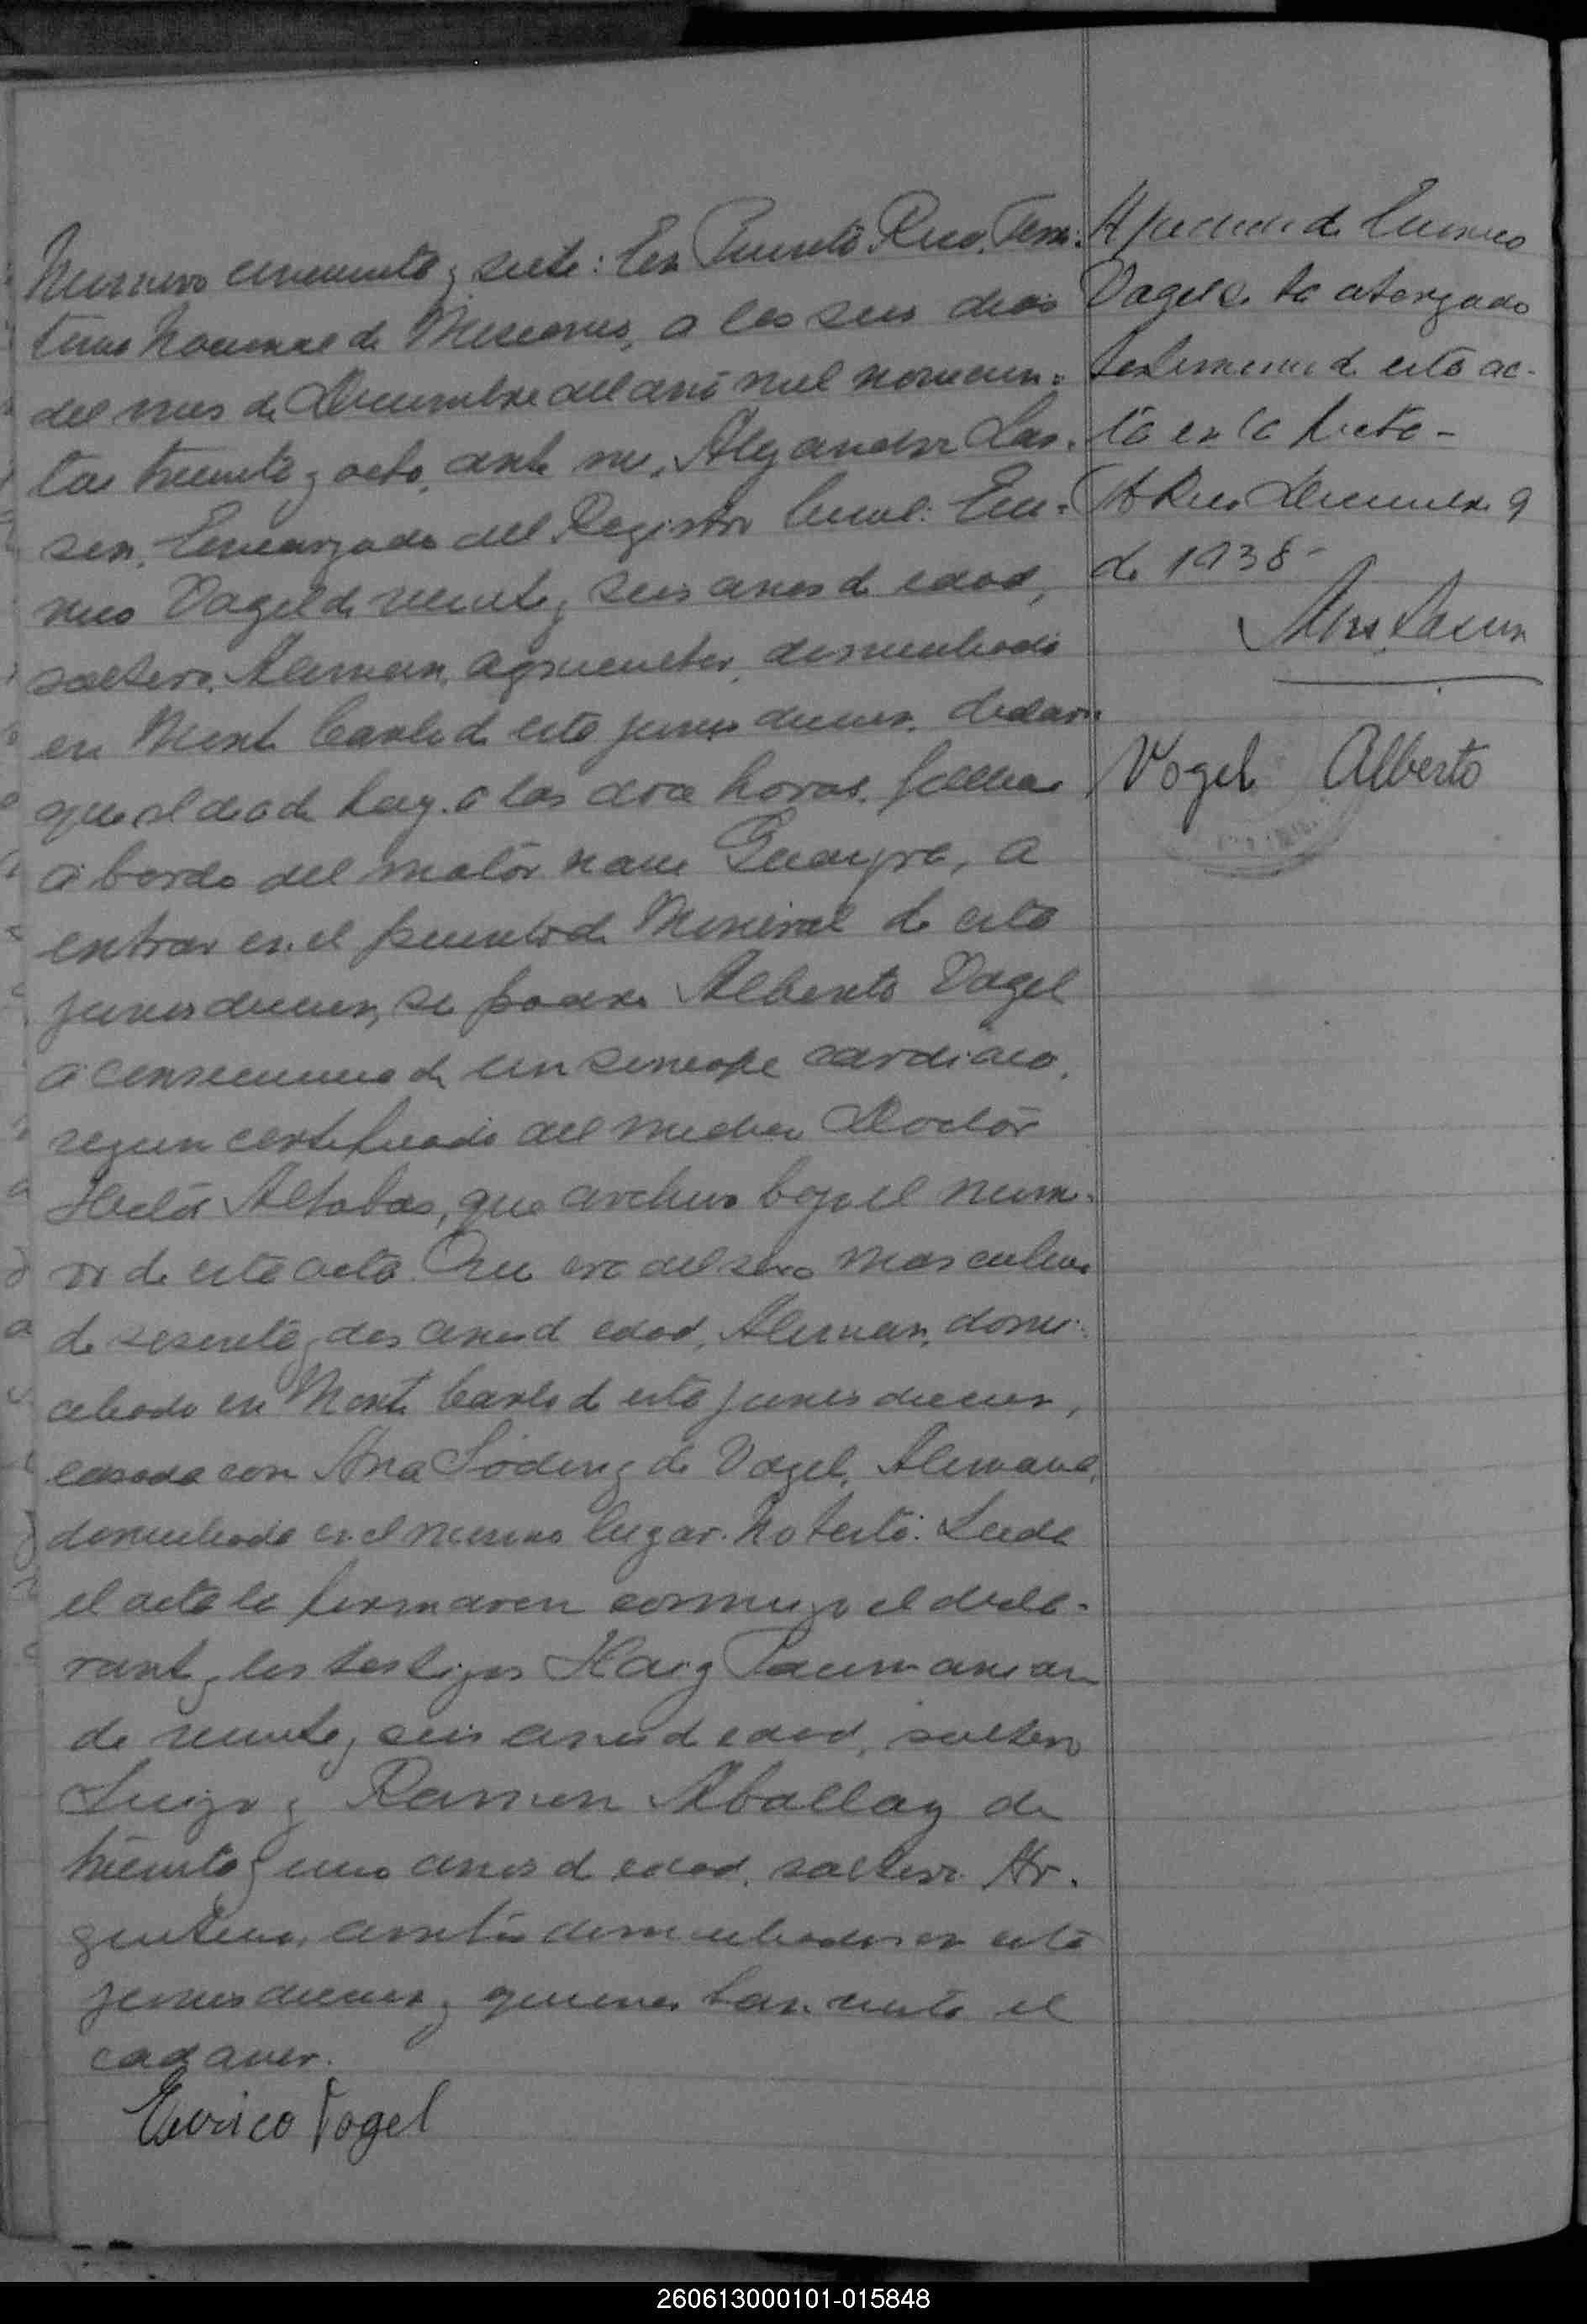 Numero cincuenta y siete: En Puerto Rico, Terri-
torio Nacional de Misiones, a los seis dias
del mes de Diciembre del año mil novecien-
tos treinta y ocho, ante mi, Alejandro Lar-
sen, Encargado del Registro Civil: Eu-
rico Vogel de veinte y seis años de edad,
soltero, Aleman, agricultor, domiciliado
en Monte Carlo de esta jurisdiccion, declaro
que el dia de hoy a las doce horas, fallecio
a bordo del motor nave Guayra, a
entrar en el puerto de Mineral de esta
jurisdiccion, su padre Alberto Vogel
a consecuencia de un sincope cardiaco,
segun certificado del medico Doctor
Hector Altabas, que archivo bajo el nume-
ro de este acta. Que era del sexo masculino
de sesenta y dos años de edad, Aleman, domi-
ciliado en Monte Carlo de esta jurisdiccion,
casado con Ana Söding de Vogel, Alemana,
domiciliada en el mismo lugar. No testó. Leida
el acta la firmaron conmigo el decla-
rante y los testigos Haig
de veinte y seis años de edad, soltero
Suizo y Ramon Aballay de
treinta y uno años de edad, soltero Ar-
gentino, ambos domiciliados en esta
jurisdiccion y quienes han visto el
cadaver.
Eurico Vogel
A pedido de Eurico
Vogel se ha otorgado
testimonio de esta ac-
ta en la fecha-
Pto Rico Diciembre 9
de 1938-
Vogel Alberto